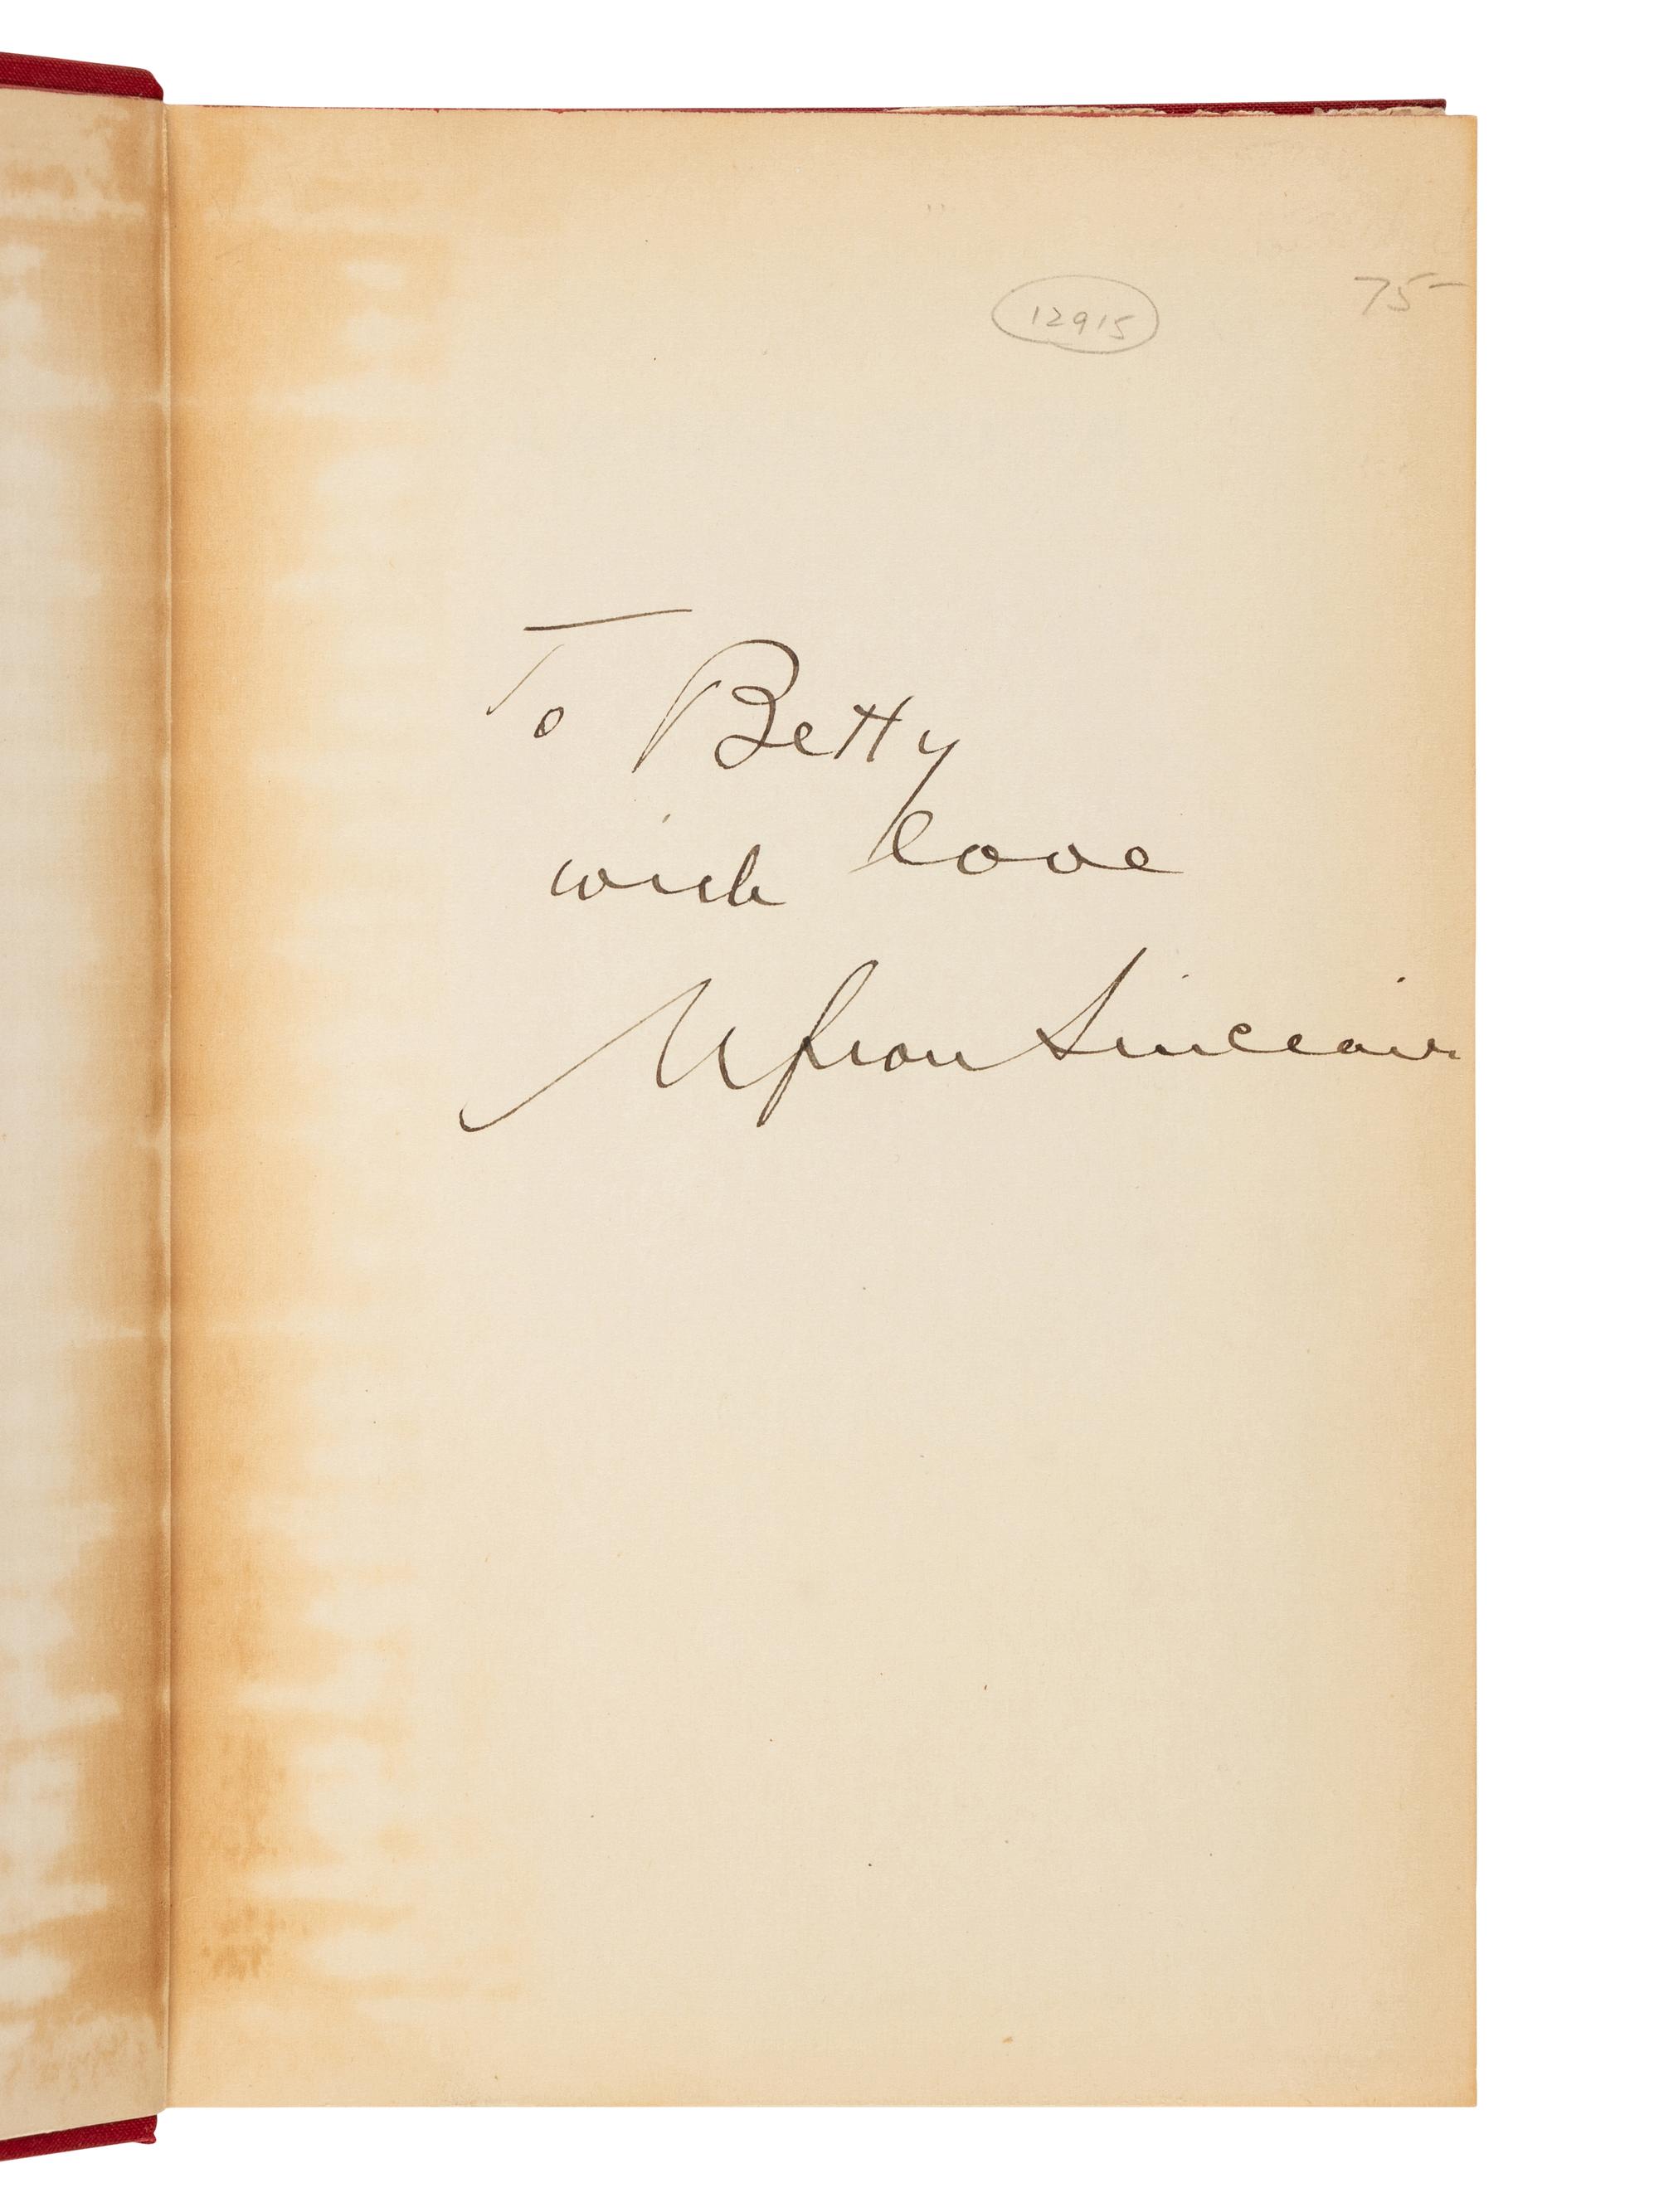 75-
12915
To Betty
with love
Upton Sinclair